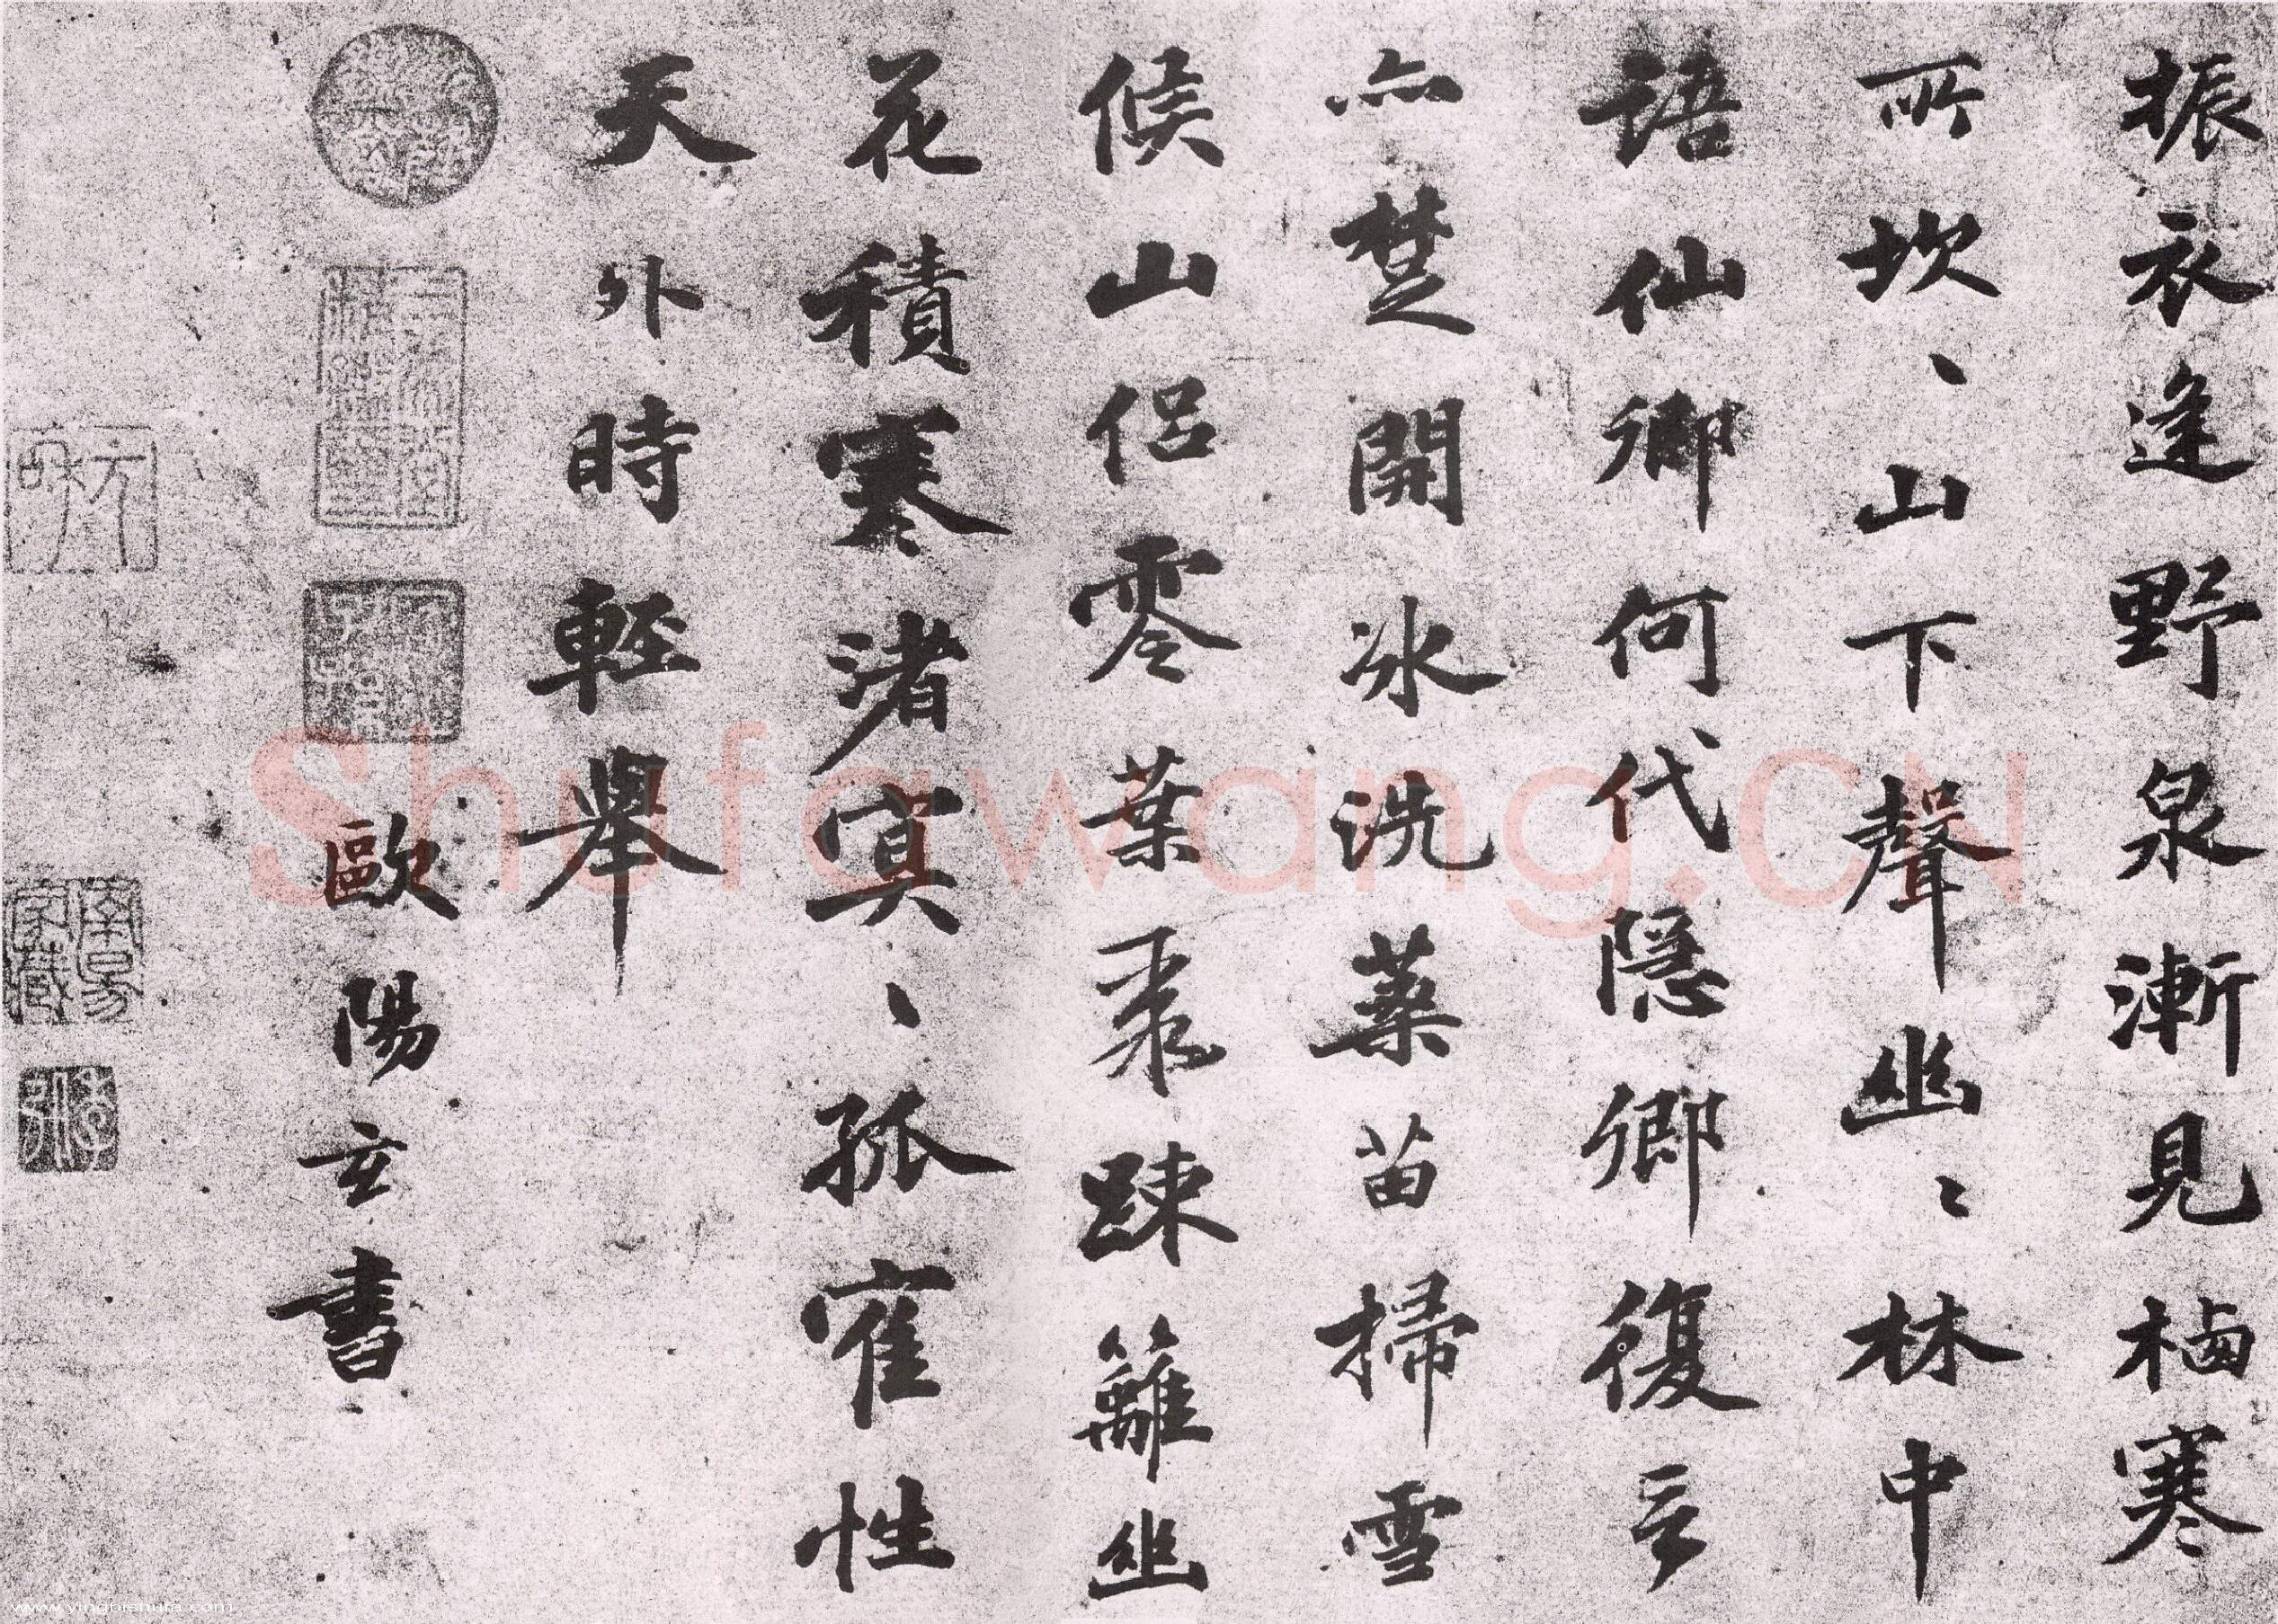 振衣逢野泉漸見栖寒
所坎、山下聲幽、林中
語仙鄉何代隱鄉復言
亦楚開冰洗藥苗掃雪
候山侶零葉棗踈籬幽
花積寒渚冥、孤隺性
天外時輕舉
歐陽玄書
Shufawang.CN
www.yingbishufa.com